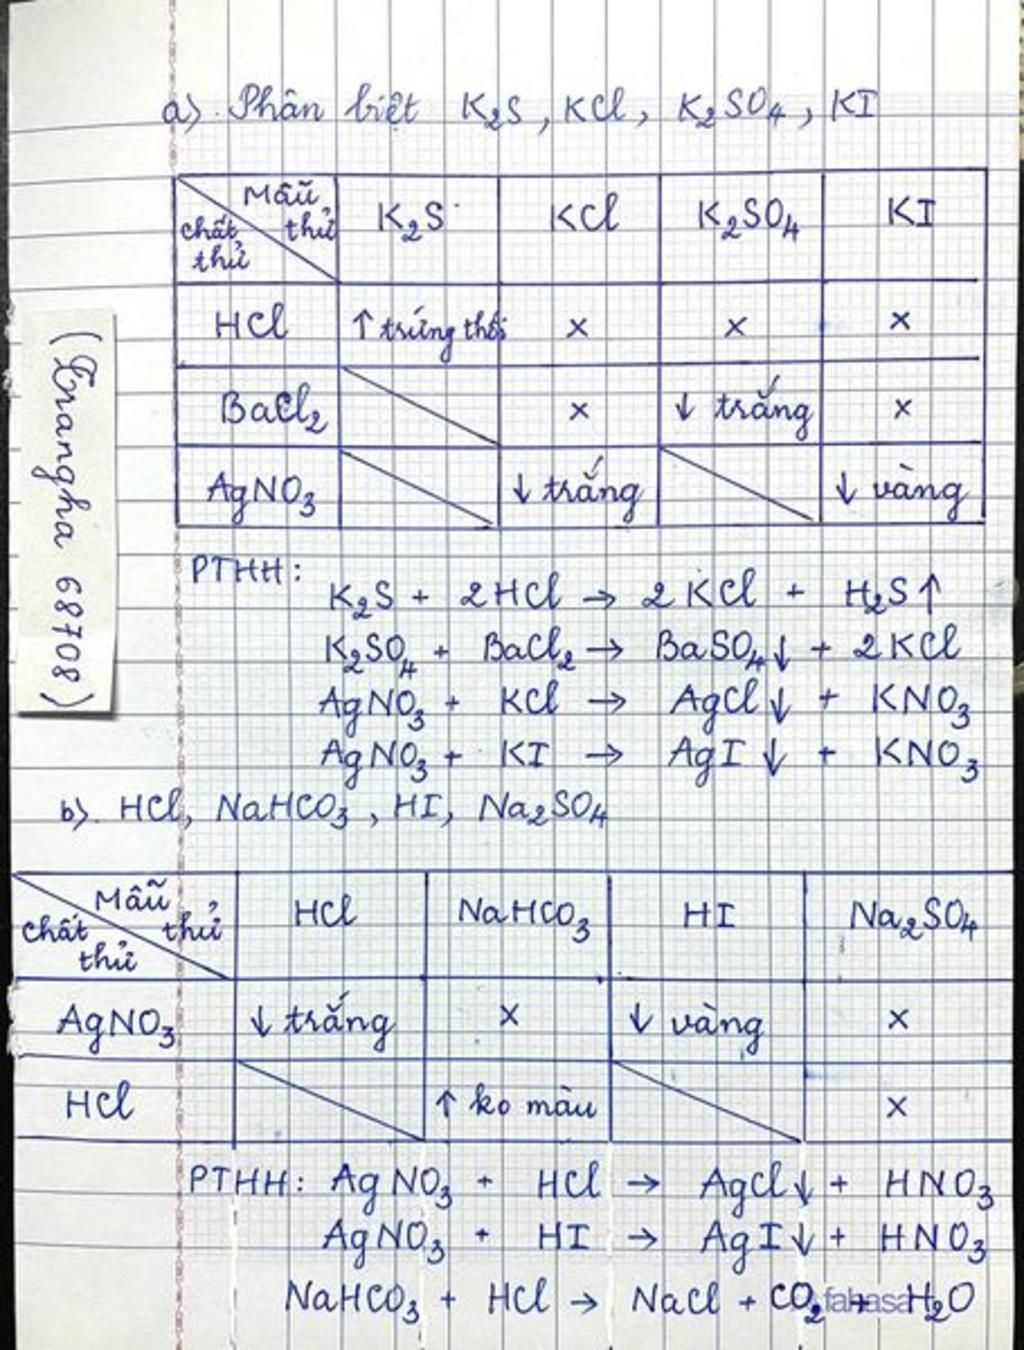 a) Phân biệt K₂S, KCl, K₂SO₄, KI
Mẫu thử
chất thử
K₂S KCl K₂SO₄ KI
HCl ↑ trứng thối x x x
BaCl₂ x ↓ trắng x
AgNO₃ ↓ trắng ↓ vàng
PTHH:
K₂S + 2HCl → 2KCl + H₂S↑
K₂SO₄ + BaCl₂ → BaSO₄↓ + 2KCl
AgNO₃ + KCl → AgCl↓ + KNO₃
AgNO₃ + KI → AgI↓ + KNO₃
(Trangha 68708)
b). HCl, NaHCO₃, HI, Na₂SO₄
Mẫu thử
chất thử
HCl NaHCO₃ HI Na₂SO₄
AgNO₃ ↓ trắng x ↓ vàng x
HCl ↑ ko màu x
PTHH: AgNO₃ + HCl → AgCl↓ + HNO₃
AgNO₃ + HI → AgI↓ + HNO₃
NaHCO₃ + HCl → NaCl + CO₂ + H₂O
fahasa